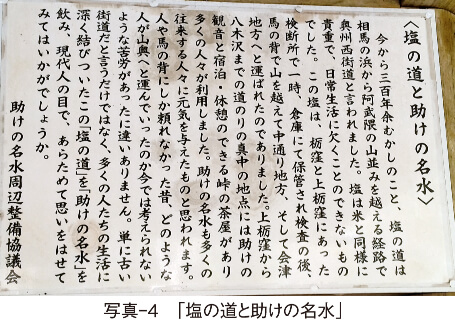 〈塩の道と助けの名水〉
今から三百年余むかしのこと、塩の道は
相馬の浜から阿武隈の山並みを越える経路で
奥州西街道と言われました。塩は米と同様に
貴重で、日常生活に欠くことのできないもの
でした。この塩は、栃窪と上栃窪にあった
検断所で一時、倉庫にて保管され検査の後、
馬の背で山を越えて中通り地方、そして会津
地方へと運ばれたのでありました。上栃窪から
八木沢までの道のりの真中の地点には助けの
観音と宿泊・休憩のできる峠の茶屋があり
多くの人々が利用しました。助けの名水も多くの
往来する人々に元気を与えたものと思われます。
人や馬の背にしか頼れなかった昔、どのような
人が山奥へと運んでいったのか今では考えられない
ような苦労があったに違いありません。単に古い
街道だと言うだけではなく、多くの人たちの生活に
深く結びついたこの「塩の道」を「助けの名水」を
飲み、現代人の目で、あらためて思いをはせて
みてはいかがでしょうか。
助けの名水周辺整備協議会
写真-4　「塩の道と助けの名水」